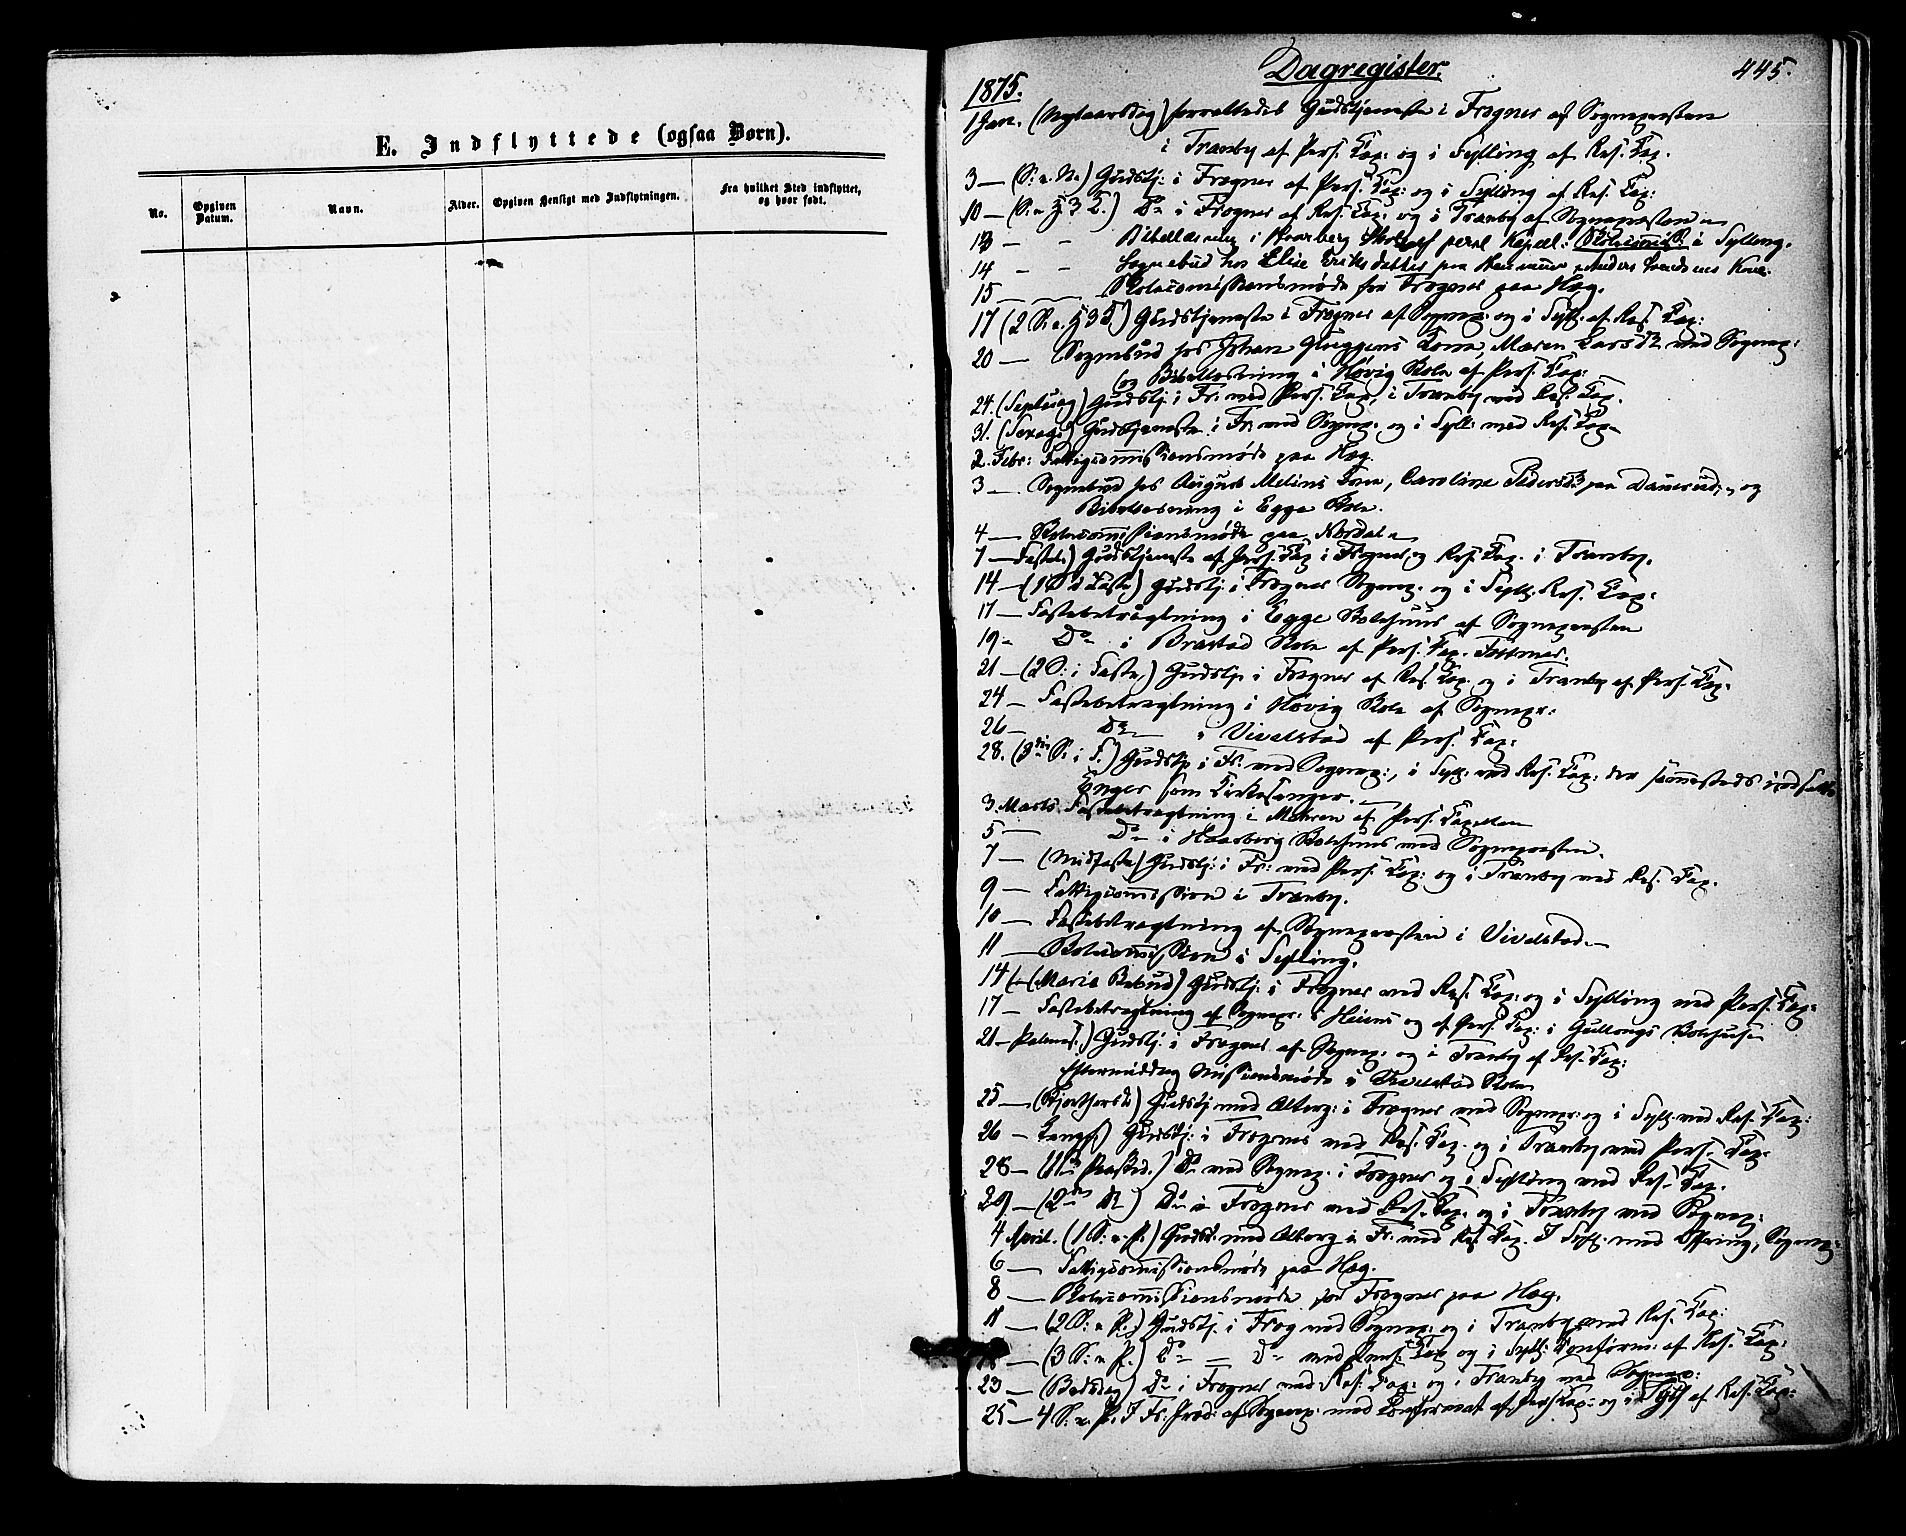 E. Indflyttede (ogsaa Børn).
No.
Opgiven Datum.
Navn.
Alder.
Opgiven Hensigt med Indflytningen.
Fra hvilket Sted indflyttet,
og hvor født.
Dagregister.
445.
1875.
1 Jan. (Nytaarsdag) forrettedes Gudstjeneste i Frogner af Sognepresten
i Tranby af Pers. Cap. og i Sylling af Res. Cap.
3 — (S. e. N.) Gudstj: i Frogner af Pers. Cap: og i Sylling af Res. Cap:
10 — (S. e. H 3 K.) Do i Frogner af Res. Cap: og i Tranby af Sognepresten
13 — - Bibellæsning i Haarberg Skole af pers. Kapel: i Sylling.
14 - - Sognebud hos Elise Eriksdatter paa
15 — Skolecommissionsmøde for Frogner paa Hæg.
17 (2 S. e. H 3 K) Gudstjeneste i Frogner af Sognep: og i Syll. af Res. Cap:
20 — Sognebud hos Johan Gluggens Kone, Maren Larsdr med Sognep:
og Bibellæsning i Høvig Skole af Pers. Cap:
24. (Septuag) Gudstj i Fr: med Pers. Cap, i Tranby med Res. Cap.
31. (Sexages) Gudstjeneste i Fr. med Sognep: og i Syll: med Res. Cap
2. Febr: Fattigcommissionsmøde paa Hæg.
3 — Sognebud hos August Melins Kone, Caroline Pedersdr paa og
Bibellæsning i Egge Skole.
4 — Skolecommissionsmøde paa Nordal
7 — Fastel.) Gudstjeneste af Pers. Cap i Frogner og Res. Cap. i Tranby.
14 — (1 S i Faste) Gudstj i Frogner Sognep. og i Syll. Res. Cap:
17 — Fastebetragtning i Egge Skolehuus af Sognepresten
19 - Do i Brastad Skole af Pers. Cap.
21 — (2 S: i Faste,) Gudstj. i Frogner af Res. Cap. og i Tranby af Pers. Cap.
24 — Fastebetragtning i Høvig Skole af Sognepr:
26 — Do — i Vivelstad af Pers. Cap:
28. (3die S. i F.) Gudstj i Fr. med Sognep:, i Syll. med Res. Cap: der sammesteds indsatte
Enger som Kirkesanger.
3 Marts. Fastebetragtning i Mehren af Pers. Capellan
5 — Do i Haarberg Skolehuus med Sognepresten.
7 — (Midfaste) Gudstj: i Fr: med Pers. Cap: og i Tranby med Res. Cap.
9 — Fattigcommission i Tranby.
10 — Fastebetragtning af Sognepresten i Vivelstad.
11 — Skolecommission i Sylling.
14 — (Mariæ Bebud) Gudstj: i Frogner med Res. Cap: og i Sylling med Pers. Cap.
17 — Fastebetragtning af Sognepr. i Heiens og af Pers. Cap: i Gullaugs Skolehuse
21 — Palmes.) Gudstj: i Frogner af Sognep: og i Tranby af Res. Cap:
Eftermiddag Missionsmøde i Skole
25 — (Skjærthorsd) Gudstj med Alterg: i Frogner med Sognepr: og i Syll. med Res. Cap:
26 — Langf.) Gudstj: i Frogner med Res. Cap. og i Tranby med Pers. Cap.
28 — (1ste Paasked.) Do med Sognep. i Frogner og i Sylling med Res. Cap.
29 — (2den D) Do i Frogner med Res. Cap. og i Tranby med Sognep:
4 April. (1 S: e. P.) Gudstj. med Alterg i Fr. med Res. Cap. I Syll. med Offring, Sognep:
6 — Fattigcommissionsmøde paa Hæg.
8 — Skolecommissionsmøde for Frogner paa Hæg.
11 — (2 S: e P.) Gudstj. i Frog med Sognep: og i Tranby med Res. Cap:
18 — (3 S: e P.) Do — Do med Pers: Cap og i Syll: Confirm: af Res. Cap:
23 — (Bededag) Do i Frogner med Res. Cap: og i Tranby med Sognep:
25 — 4 S. e. P. I Fr. Præd: af Sognep: med Confirmat af Pers Cap: og i Syll af Res. Cap: